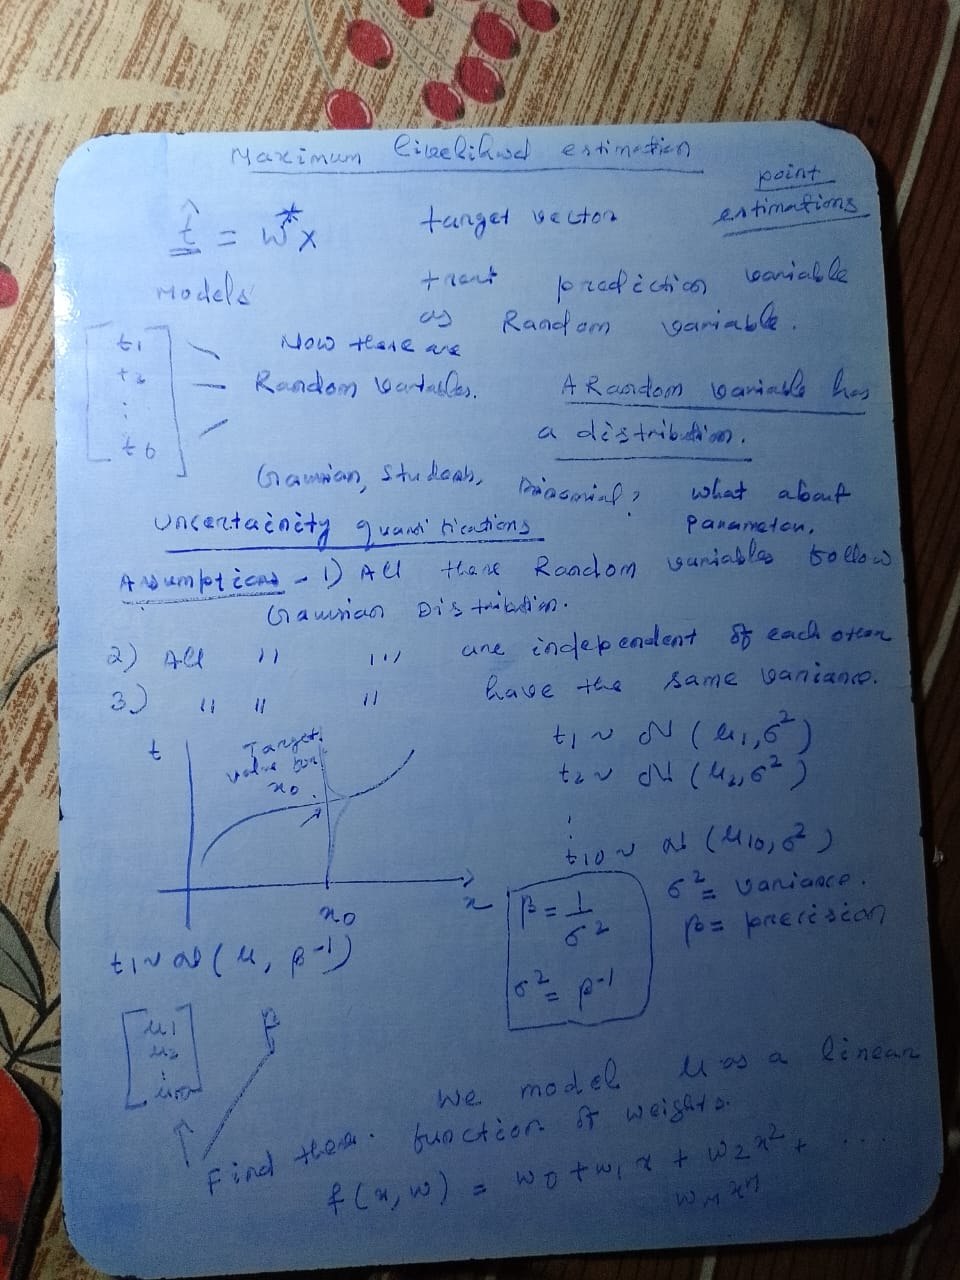 Maximum likelihood estimation
point estimations
t̂ = w*x target vector
Models treat prediction variable
as Random variable.
t1
t2
:
t6
Now these are
Random variables. A Random variable has
a distribution.
Gaussian, Students, Binomial? what about
parameters.
Uncertainity quantifications
Assumptions - 1) All these Random variables follow
Gaussian Distribution.
2) All 〃 〃 are independent of each other
3) 〃 〃 〃 have the same variance.
t
Target
value for
x0.
x0
x
t1 ~ N (μ1, σ²)
t2 ~ N (μ2, σ²)
⋮
t10 ~ N (μ10, σ²)
σ² = variance.
β = precision
β = 1/σ²
σ² = β-1
t1 ~ N (μ, β-1)
μ1
μ2
⋮
β
Find these.
We model μ as a linear
function of weights.
f(x, w) = w0 + w1 x + w2 x² + ....
wn xn